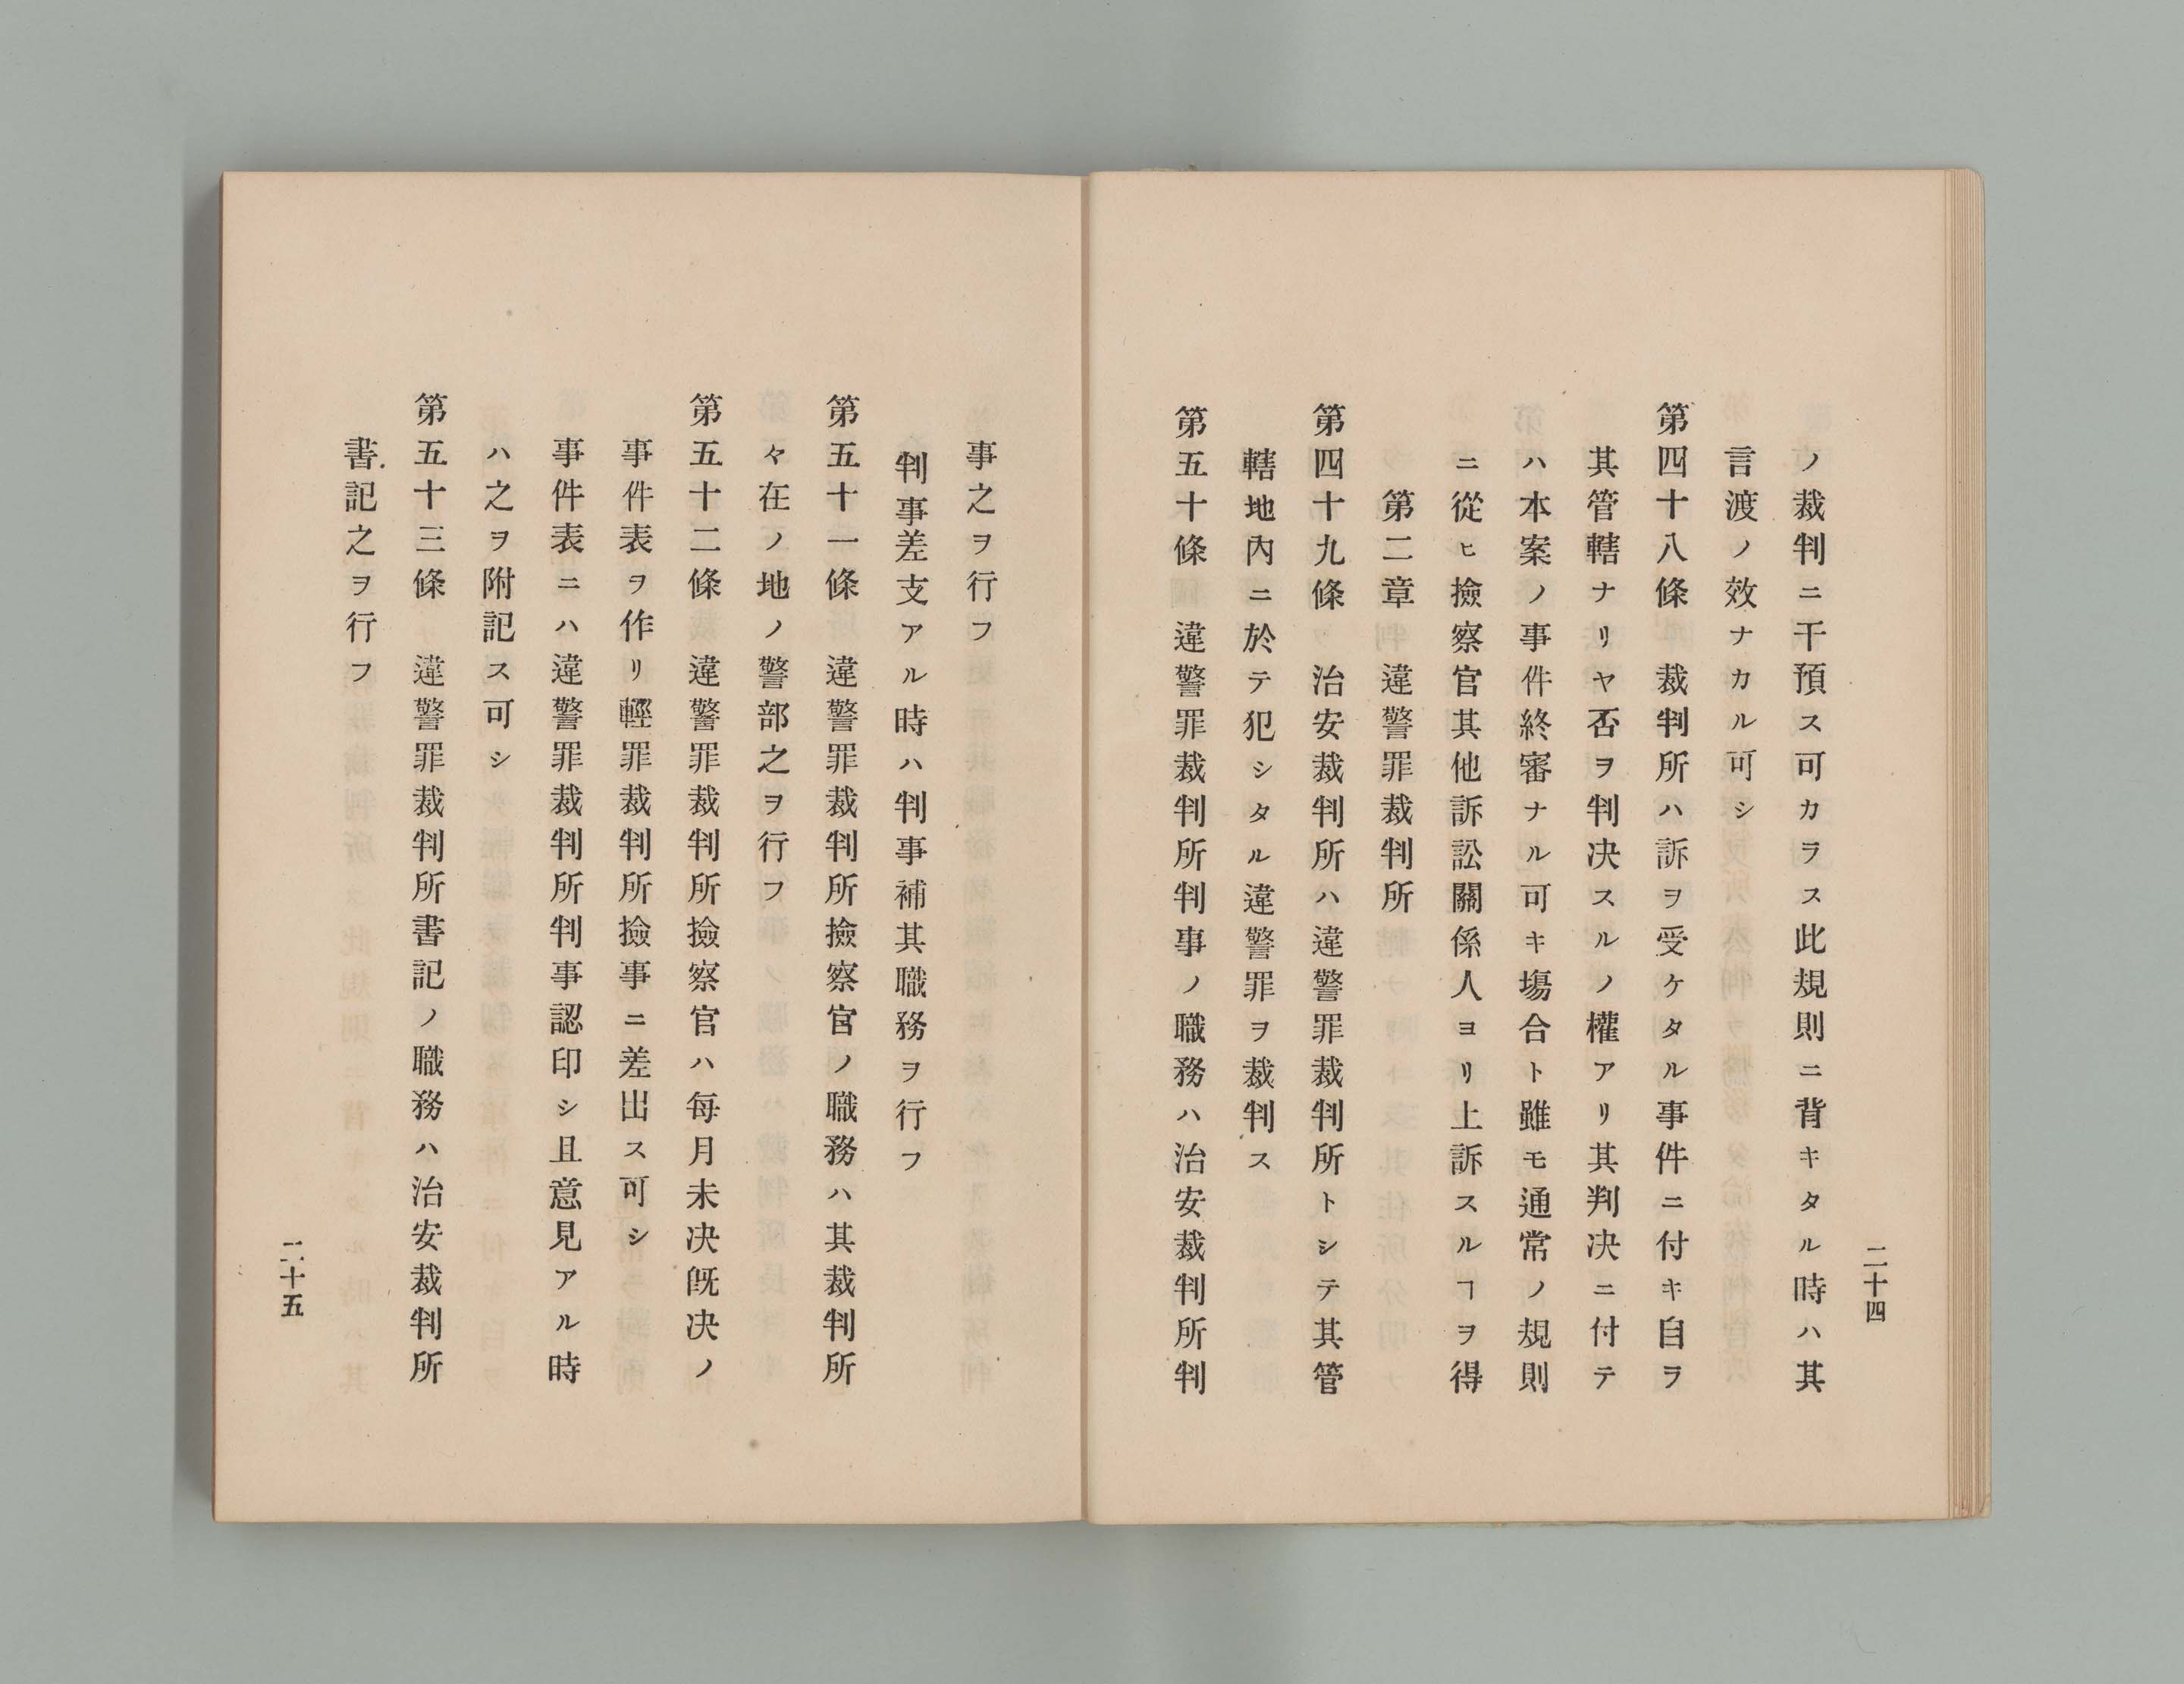 二十四
ノ裁判ニ干預ス可カラス此規則ニ背キタル時ハ其
言渡ノ效ナカル可シ
第四十八條　裁判所ハ訴ヲ受ケタル事件ニ付キ自ラ
其管轄ナリヤ否ヲ判决スルノ權アリ其判决ニ付テ
ハ本案ノ事件終審ナル可キ塲合ト雖モ通常ノ規則
ニ從ヒ撿察官其他訴訟關係人ヨリ上訴スルヿヲ得
第二章　違警罪裁判所
第四十九條　治安裁判所ハ違警罪裁判所トシテ其管
轄地內ニ於テ犯シタル違警罪ヲ裁判ス
第五十條　違警罪裁判所判事ノ職務ハ治安裁判所判
事之ヲ行フ
判事差支アル時ハ判事補其職務ヲ行フ
第五十一條　違警罪裁判所撿察官ノ職務ハ其裁判所
々在ノ地ノ警部之ヲ行フ
第五十二條　違警罪裁判所撿察官ハ每月未决旣决ノ
事件表ヲ作リ輕罪裁判所撿事ニ差出ス可シ
事件表ニハ違警罪裁判所判事認印シ且意見アル時
ハ之ヲ附記ス可シ
第五十三條　違警罪裁判所書記ノ職務ハ治安裁判所
書記之ヲ行フ
二十五